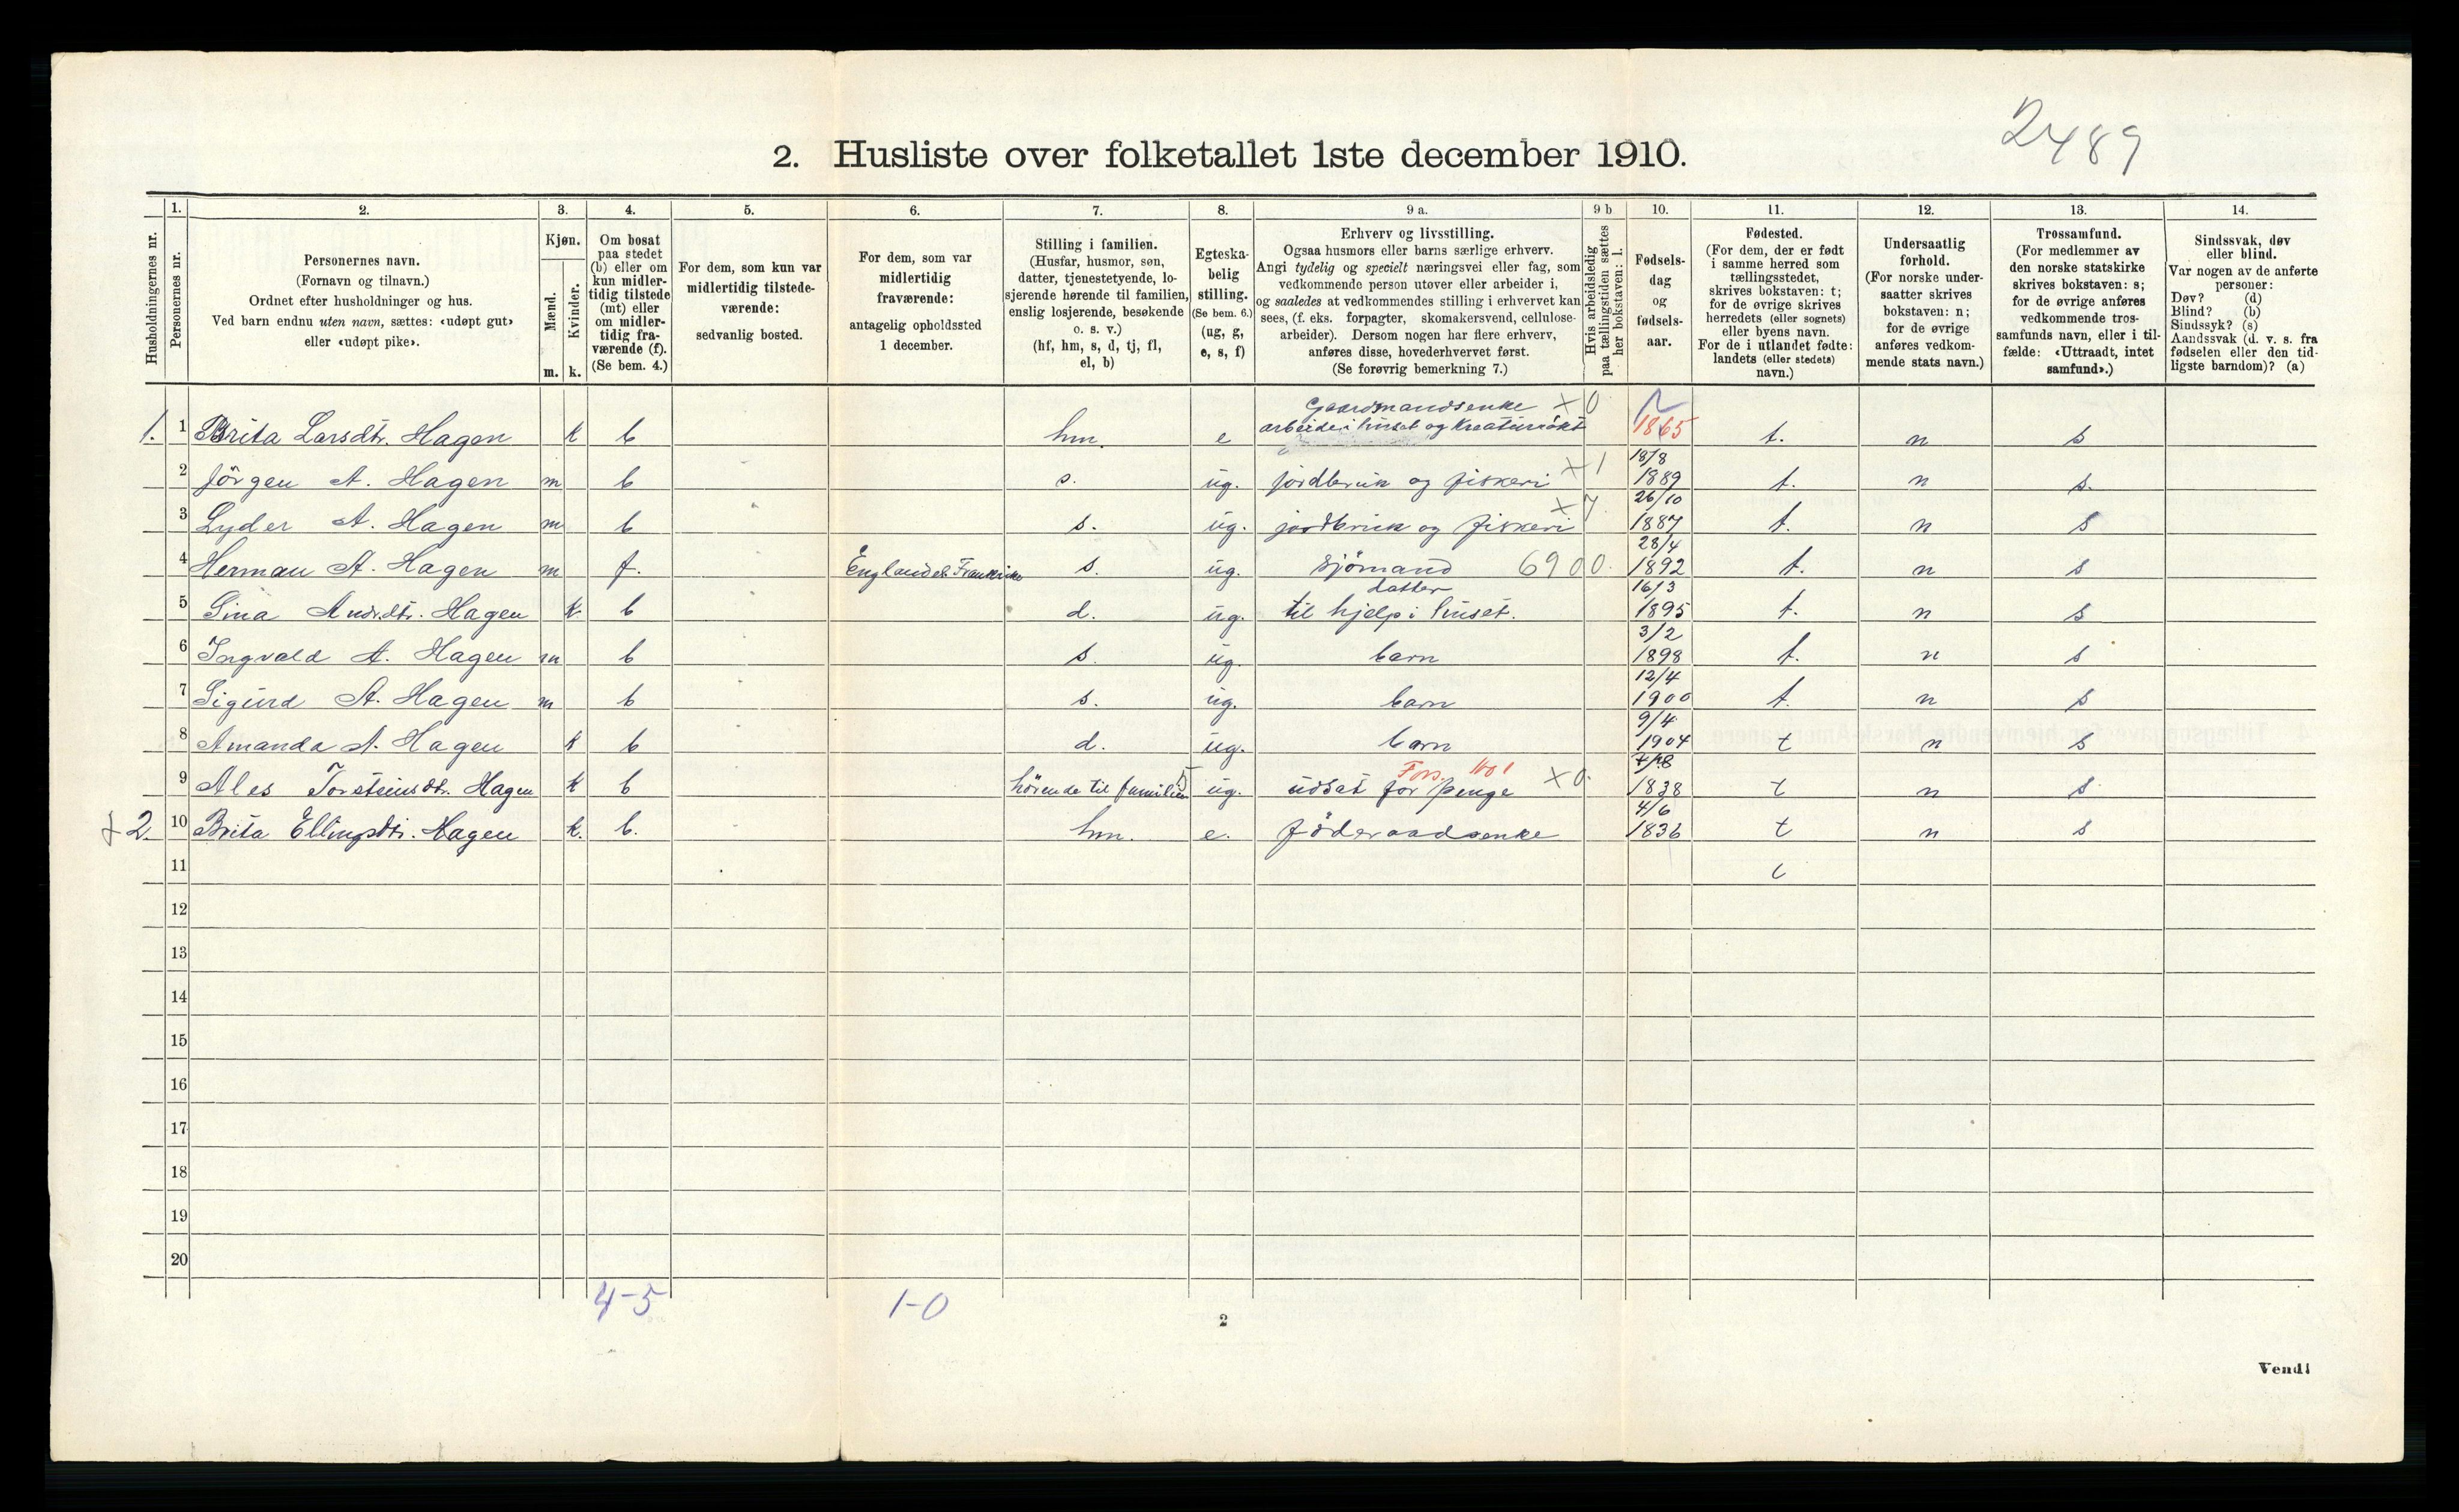 2489
2. Husliste over folketallet 1ste december 1910.
1. 2. 3. 4. 5. 6. 7. 8. 9 a. 9 b 10. 11. 12. 13. 14.
Husholdningernes nr.
Personernes nr.
Personernes navn.
(Fornavn og tilnavn.)
Ordnet efter husholdninger og hus.
Ved barn endnu uten navn, sættes: «udøpt gut»
eller «udøpt pike».
Kjøn.
Mænd.
Kvinder.
m. k.
Om bosat
paa stedet
(b) eller om
kun midler-
tidig tilstede
(mt) eller
om midler-
tidig fra-
værende (f).
(Se bem. 4.)
For dem, som kun var
midlertidig tilstede-
værende:
sedvanlig bosted.
For dem, som var
midlertidig
fraværende:
antagelig opholdssted
1 december.
Stilling i familien.
(Husfar, husmor, søn,
datter, tjenestetyende, lo-
sjerende hørende til familien,
enslig losjerende, besøkende
o. s. v.)
(hf, hm, s, d, tj, fl,
el, b)
Egteska-
belig
stilling.
(Se bem. 6.)
(ug, g,
e, s, f)
Erhverv og livsstilling.
Ogsaa husmors eller barns særlige erhverv.
Angi tydelig og specielt næringsvei eller fag, som
vedkommende person utøver eller arbeider i,
og saaledes at vedkommendes stilling i erhvervet kan
sees, (f. eks. forpagter, skomakersvend, cellulose-
arbeider). Dersom nogen har flere erhverv,
anføres disse, hovederhvervet først.
(Se forøvrig bemerkning 7.)
Hvis arbeidsledig
paa tællingstiden sættes
her bokstaven: l.
Fødsels-
dag
og
fødsels-
aar.
Fødested.
(For dem, der er født
i samme herred som
tællingsstedet,
skrives bokstaven: t;
for de øvrige skrives
herredets (eller sognets)
eller byens navn.
For de i utlandet fødte:
landets (eller stedets)
navn.)
Undersaatlig
forhold.
(For norske under-
saatter skrives
bokstaven: n;
for de øvrige
anføres vedkom-
mende stats navn.)
Trossamfund.
(For medlemmer av
den norske statskirke
skrives bokstaven: s;
for de øvrige anføres
vedkommende tros-
samfunds navn, eller i til-
fælde: «Uttraadt, intet
samfund».)
Sindssvak, døv
eller blind.
Var nogen av de anførte
personer:
Døv? (d)
Blind? (b)
Sindssyk? (s)
Aandssvak (d. v. s. fra
fødselen eller den tid-
ligste barndom)? (a)
Gaardmandsenke X 0
1. 1 Brita Larsdtr. Hagen k b hm. e arbeide i huset og Kreaturrökt 1865 t. n s
18/8
2 Jörgen A. Hagen m b s. ug. jordbruk og fiskeri X 1 1889 t. n s.
26/10
3 Lyder A. Hagen m b s. ug. jordbruk og fiskeri X 7. 1887 t. n s
28/4
4 Herman A. Hagen m f. England el. Frankrike s. ug. sjömand 6900. 1892 t. n s
datter 16/3
5 Sina Andrdtr. Hagen k. b d. ug. til hjelp i huset. 1895 t. n s
3/2
6 Ingvald A. Hagen m b s. ug. barn 1898 t. n s
12/4
7 Sigurd A. Hagen m b s. ug. barn 1900 t. n s
9/4
8 Amanda A. Hagen k b d. ug. barn 1904 t n s
Fors.
9 Ales Torsteinsdtr. Hagen k b hörende til familien 5 ug. udsat for penge X 0. 1838 t n s
4/6
+ 2. 10 Brita Ellingsdtr. Hagen k. b. hm. e. föderaadsenke 1836 t n s
11
12
13
14
15
16
17
18
19
20
4-5 1-0
2
Vend!